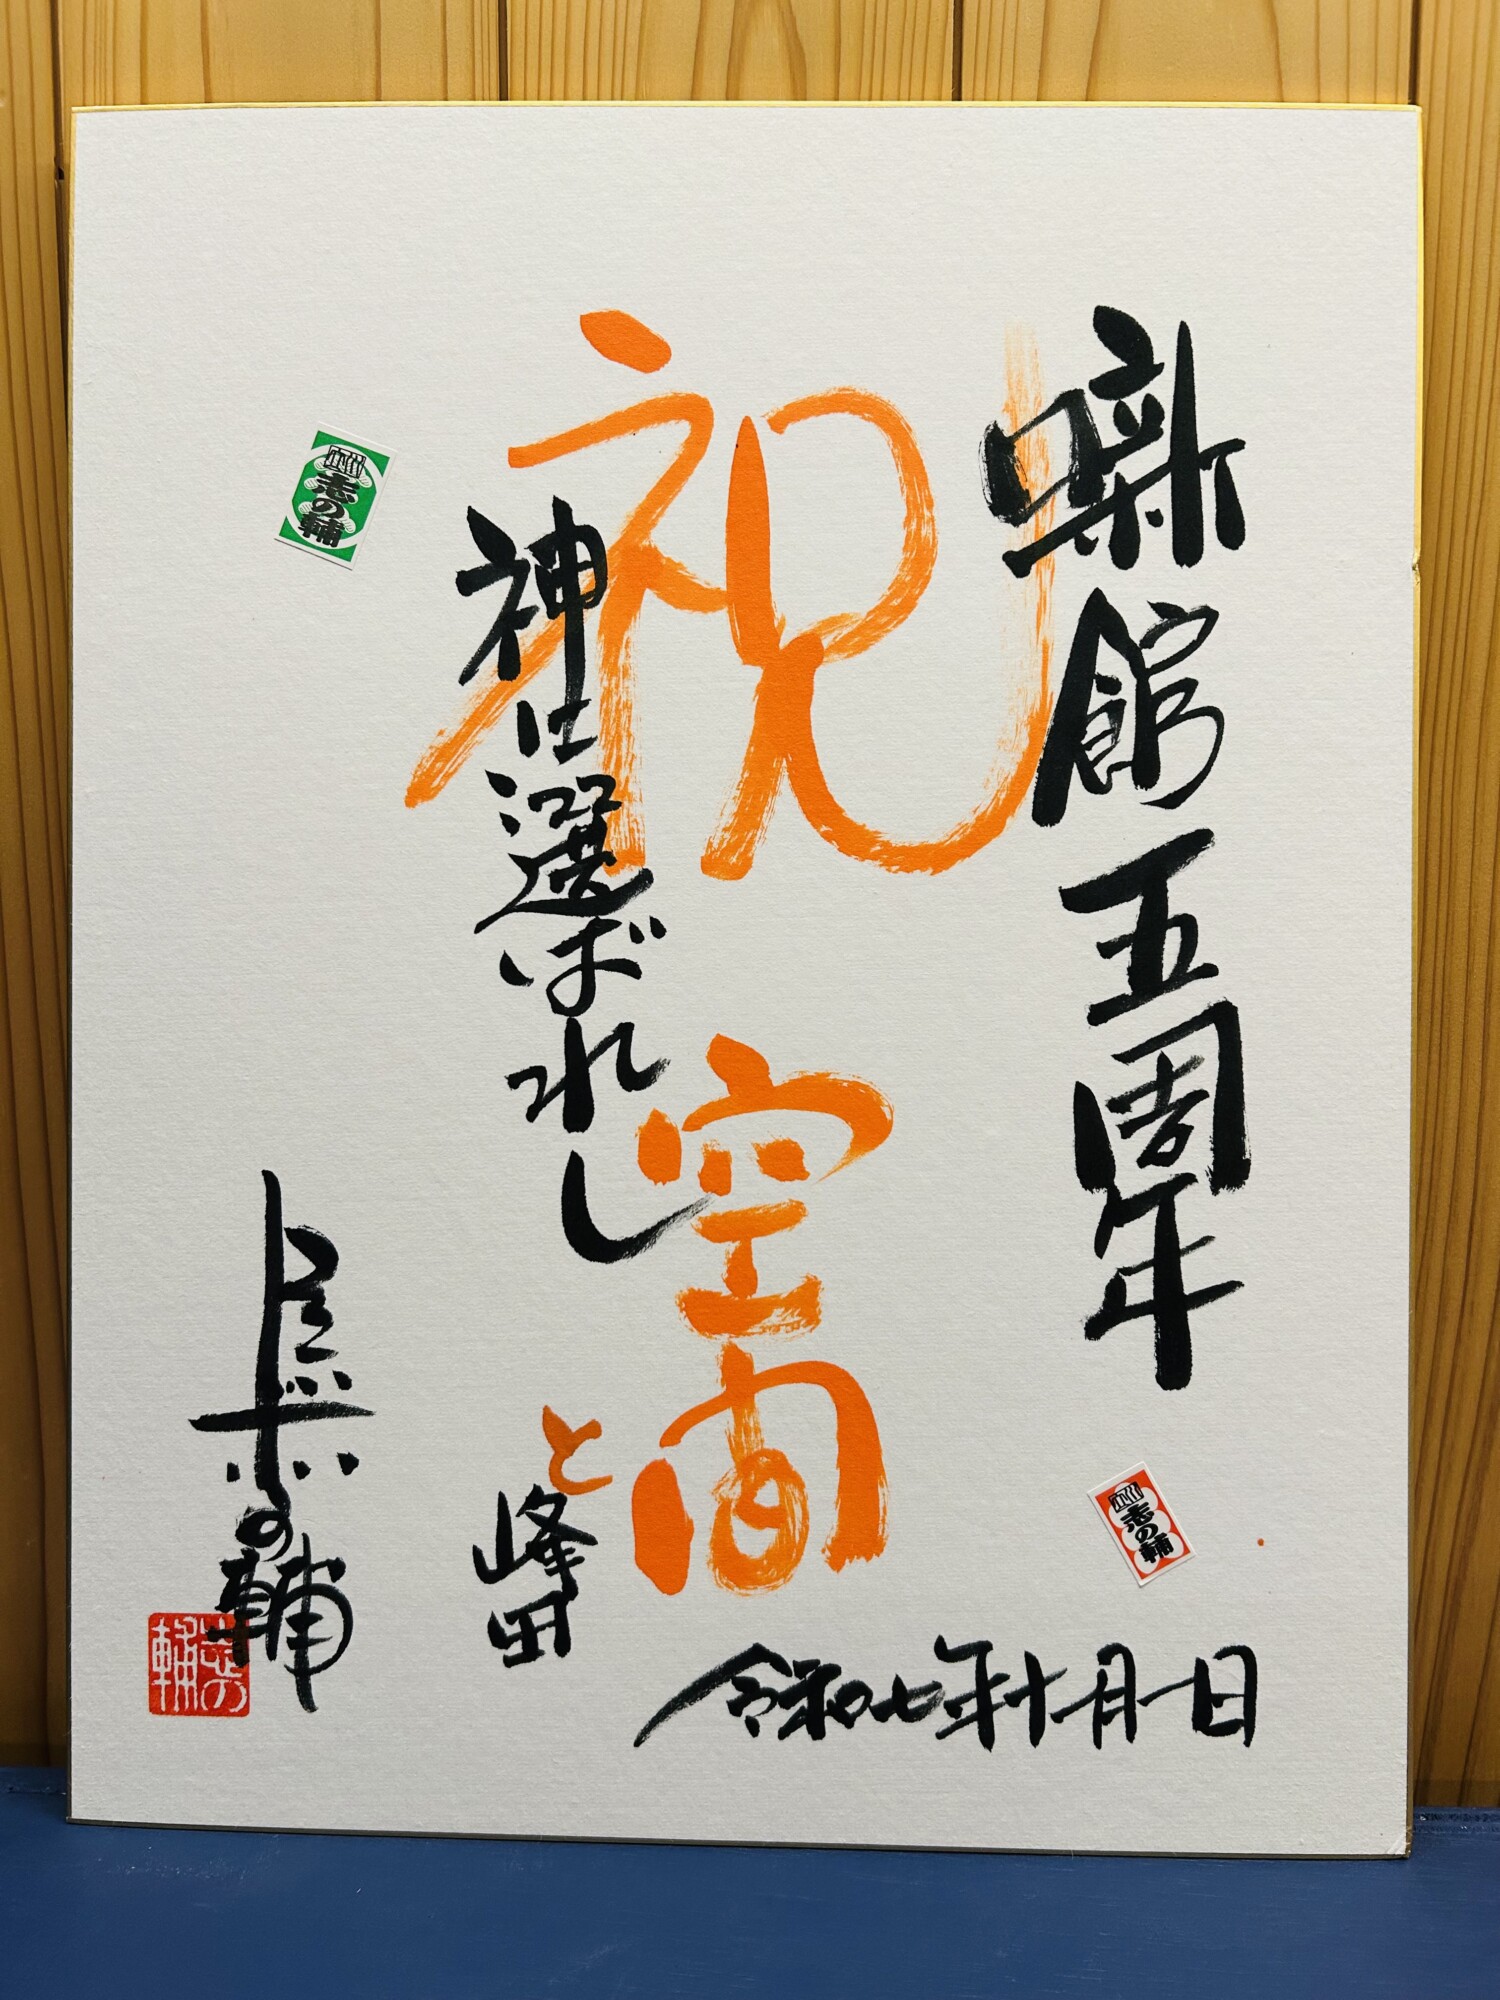 噺館五周年
祝
神に選ばれし
空間
と峰田
令和七年十月一日
の輔
志の輔
立川
志の輔
立川
志の輔